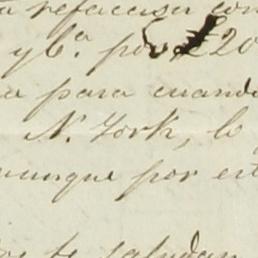 a refaccion con
y Ca. por £20
a para cuando
N. York, lo
aunque por est
te saludan